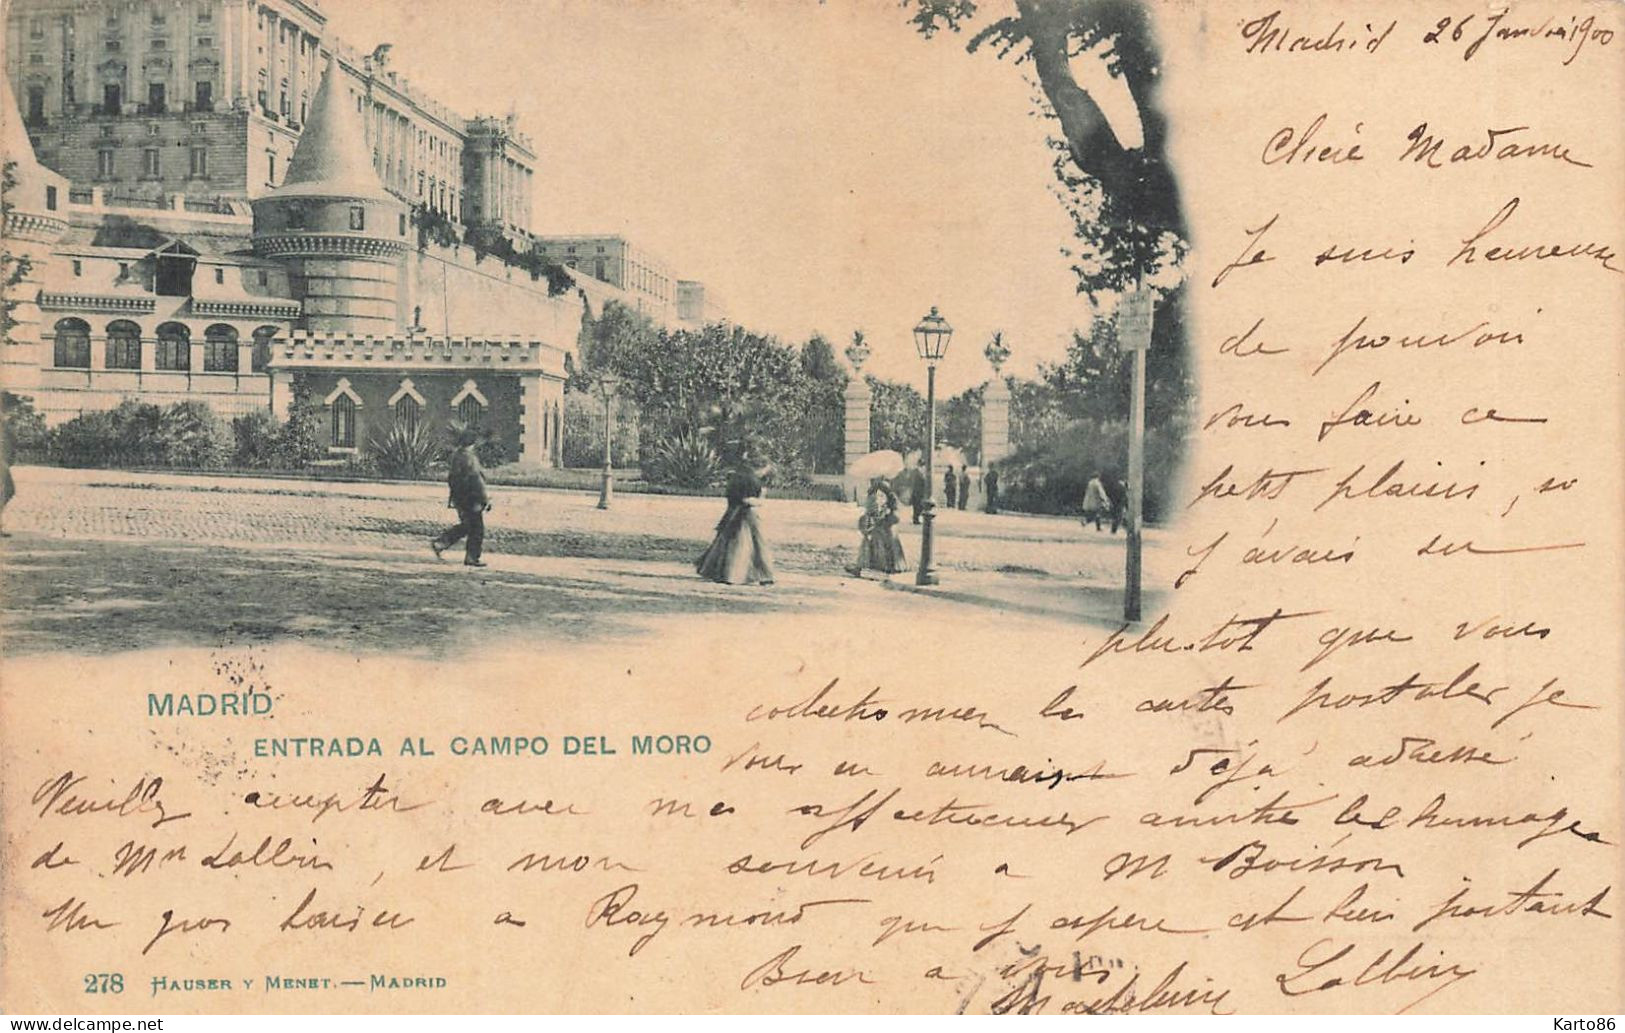 Madrid 26 Janvier 1900
Chère Madame
Je suis heureuse
de pouvoir
vous faire ce
petit plaisir, si
j'avais su
plutot que vous
collectionniez les cartes postales je
vous en aurais déjà adressé
MADRID
ENTRADA AL CAMPO DEL MORO
Veuillez accepter avec mes affectueuses amitiés les hommages
de Mr Lalbin, et mon souvenir a M Boisson
Un gros baiser a Raymond que j'espere est bien portant
Bien a vous
Madeleine Lalbin
278 HAUSER Y MENET.—MADRID
Karto86